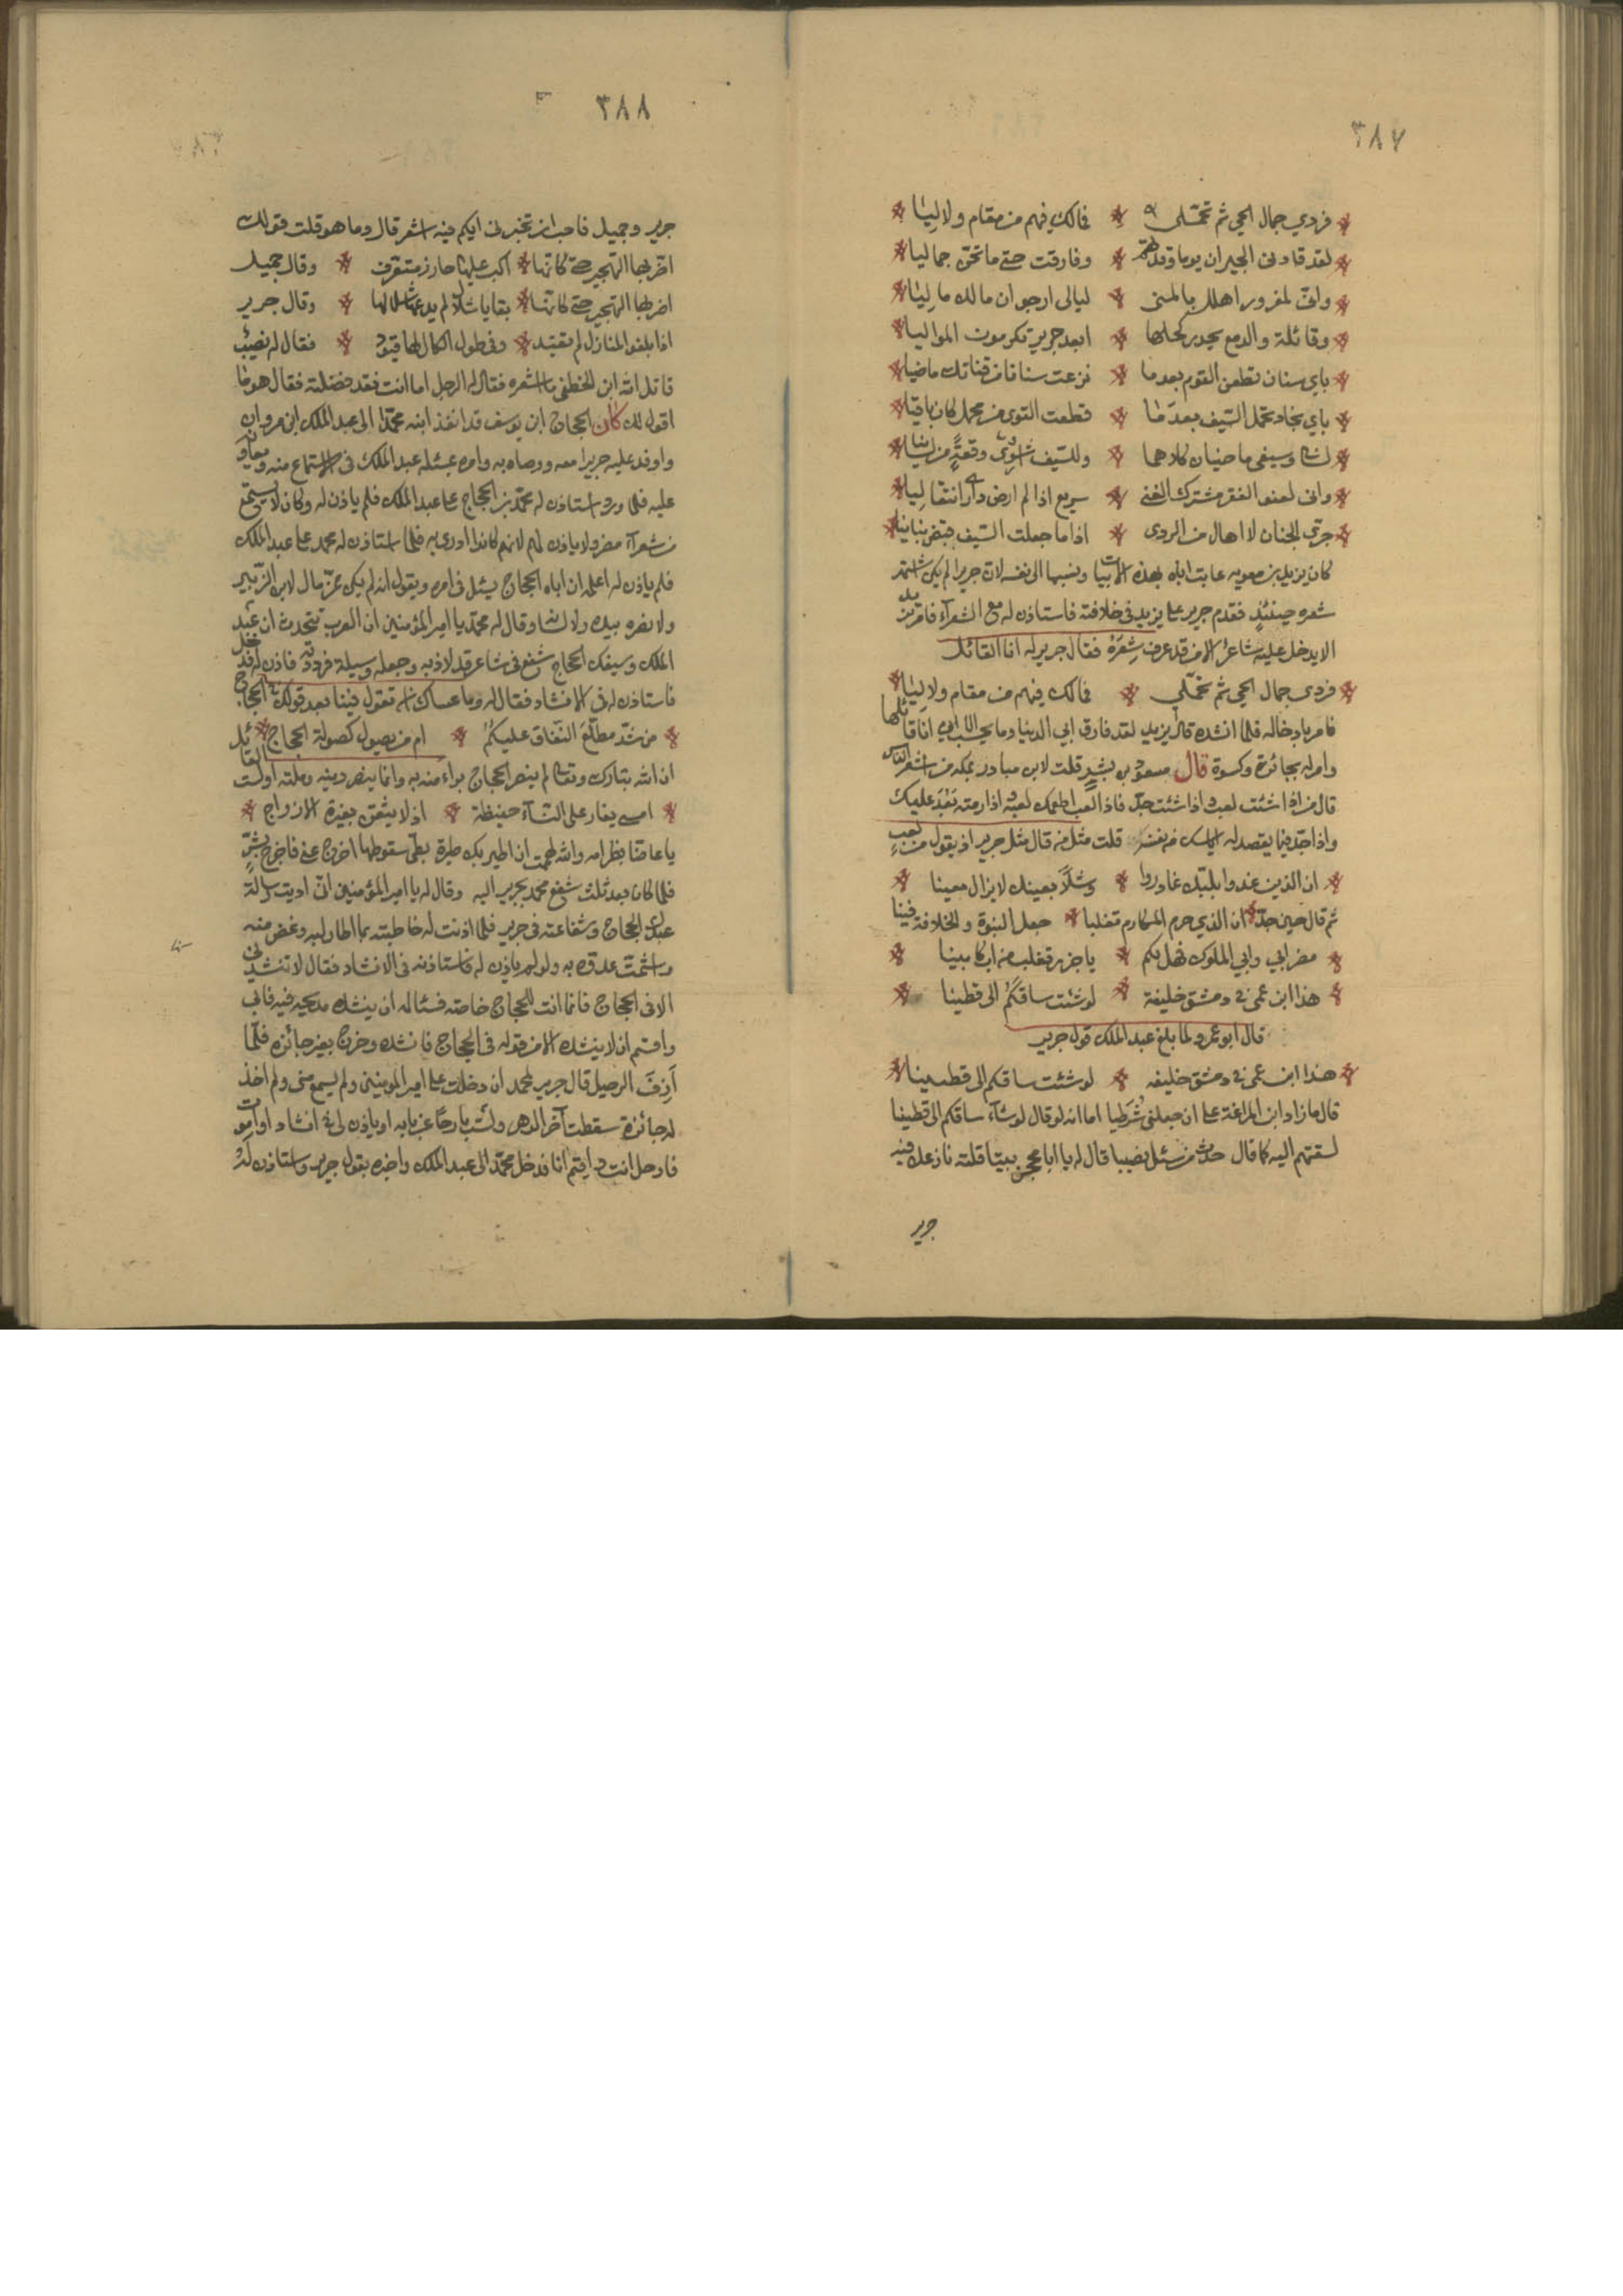 ٣٨٧
فردي جمال الحي ثم تحمّلى * فمالك فيهم من مقام ولا ليٰا
لقد قادنى الجيران يوما وقدتهم * وفارقت حتى ما تحنّ جماليا
وانّ لمغرور اعلل بالمنى * ليالى ارجوان مالك ما ليٰا
وقائلة والدمع يحدر كحلها * ابعد جرير تكرمون المواليا
باي سنان تطعن القوم بعدما * نزعت سنانا من قناتك ماضيا
باي نجاد تحمل السّيف بعدما * قطعت القوى من محمل كان باقيا
لسانى وسيفى صارمان كلاهما * وللسّيف اشوى وقعةً من لسانيا
وانى لعف الفقر مشترك الغنى * سريع اذا لم ارض دارى انتقاليا
جرّى الجنان لا اهال من الردى * اذا ما جعلت السّيف قبض بنانيا
كان يزيد بن معويه عاتب اباه بهذه الابيات ونسبها الى نفسه لان جريرا لم يكن اشتهر
شعره حينئذٍ فقدم جرير على يزيد فى خلافته فاستاذن له مع الشعرآء فامر يزيد
الا يدخل عليه شاعر الا من قد عرف شِعرَهُ فقال جرير له انا القائل
فردى جمال الحي ثم تحمّلي * فمالك فيهم من مقام ولا ليٰا
فامر بادخاله فلما انشده قال يزيد لقد فارق ابي الدنيا وما يحسب الا انى انا قائلها
وامر له بجائزة وكسوة قال مسعود بن بشر قلت لابن مبادر بمكه من اشعر الناس
قال من اذا شئت لعب واذا شئت جدّ فاذا لعب اطمعك لعبه اذا رمته بَعُدَ عليك
واذا جدّ فيما يقصد له ايأسك من نفسه قلت مثل من قال مثل جرير اذ يقول من لعبهِ
ان الذين غدوا بلبّك غادروا * وشَلًا بعينك لا يزال معينا
ثم قال حين جدّ * ان الذي حرم المكارم تغلبا * جعل النبوة والخلافة فينا
مضر ابي وابي الملوك فهل لكم * يا خزر تغلب من اب كابينا
هذا ابن عمى فى دمشق خليفة * لو شئت ساقكُم الى قطينا
قال ابو عمرو لما بلغ عبد الملك قول جرير
هذا ابن عمى فى دمشق خليفه * لو شئت ساقكم الى قطينا
قال ما زاد ابن المراغة على ان جعلنى شُرَطيا اما انه لو قال لو شآء ساقكم الى قطينا
لسقتهم اليه كما قال حدّث من سئل نصيبا قال له يا ابا محجن بيتا قلته نازعك فيه
جرير
٣٨٨
جرير وجميل فاحب ان تخبرنى ايكم فيه اشعر قال وما هو قلت قولك
اضر بها التهجير حتى كانها * اكب عليها جازر متعرق * وقال جميل
اضر بها التهجير حتى كانها * بقايا سلال لم يدعها سلالها * وقال جرير
اذا بلغوا المنازل لم تقيّد * وفى طول الكلال لها قيود * فقال له نصيْب
قاتل الله ابن الخطفى ما اشعره فقال له الرجل اما انت فقد فضلته فقال هو ما
اقول لك كان الحجاج ابن يوسف قد انفذ ابنه محمّدا الى عبد الملك ابن مروان
واوفد عليه جريرا معه ووصاه به وامره بمسئلة عبد الملك فى الاستماع منه ومعاونته
عليه فلما ورد استاذن له محمّد بن الحجاج على عبد الملك فلم ياذن له وكان لا يستمع
من شعرآء مضر ولا ياذن لهم لانهم كانوا زبيريه فلما استاذن له محمد على عبد الملك
فلم ياذن له اعلمه ان اباه الحجاج يسئل فى امره ويقول انه لم يكن ممّن مال لابن الزّبير
ولا نصره بيده ولا لسانه وقال له محمّد يا امير المؤمنين ان العرب تتحدث ان عبد
الملك وسيفه الحجاج شفع فى شاعر قد لاذ به وجعله وسيلة فردد ته فاذن له فدخل
فاستاذن له فى الانشاد فقال له وما عساك ان تقول فينا بعد قولك فى الحجاج
من سدّ مطلّع النّفاق عليكمُ * ام من يصول كصولة الحجاج *
ان الله تبارك وتعالى لم ينصر الحجاج براء منه به وانما ينصر دينه وملته اولست القائل
ام من يغار على النّسآء حفيظة * اذ لا يثقن بغيرة الازواج *
يا عاضّا بظر امه والله لهممت ان اطير بك طيرة بطىّ سقوطها اخرج عنى فاخرج بشرٍّ
فلما كان بعد ثلث شفع محمد بجرير اليه وقال له يا امير المؤمنين انّى اديت رسالة
عبدك الحجاج وشفاعته فى جرير فلما اذنت له خاطبته بما اطار لبه وغض منه
واشمتّ عدوّه به ولو لم ياذن له فاستاذنه فى الانشاد فقال لا تنشدنى
الا فى الحجاج فانما انت للحجاج خاصّه فسئاله ان ينشده مديحه فيه فابى
واقسم ان لا ينشده الا من قوله فى الحجاج فانشده وخرج بغير جائزه فلمّا
اَزِفَ الرحيل قال جرير لمحمد ان دخلت على امير المومنين ولم يسمع منى ولم اخذ
له جائزة سقطت آخر الدهر ولست بارحًا عن بابه او ياذن لى فى انشاد او اموت
فارحل انت واقيم انا فدخل محمّد الى عبد الملك واخبره بقول جرير واستاذن له